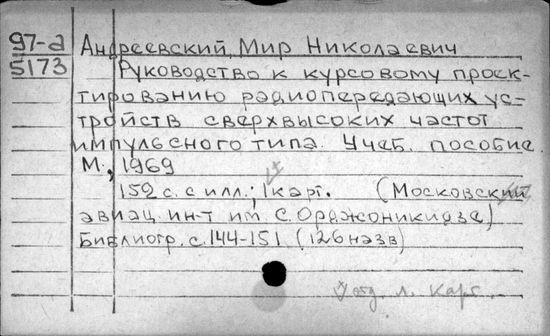 97-д Андреевский, Мир Николаевич
5173 Руководство к курсовому проек-
тированию радиопередающих ус-
тройств сверхвысоких частот
импульсного типа. Учеб. пособие.
М., 1969
152 с. с илл.; 1 карт. (Московский
авиац. ин-т им. С. Орджоникидзе)
Библиогр. с. 144-151 (126 назв)
отд. л. карт.